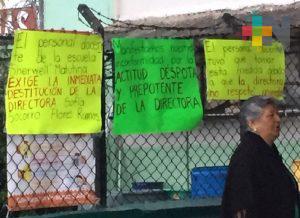 El personal docen
te de la escuela
EXIGE LA INMEDIATA
DESTITUCIÓN DE LA
DIRECTORA Sofia
Socorro Flores Ramos
Manifestamos nuestra
inconformidad por la
ACTITUD DESPOTA
Y PREPOTENTE
DE LA DIRECTORA
El personal
tuvo que tomar
esta medida
a que la directora
no respeto